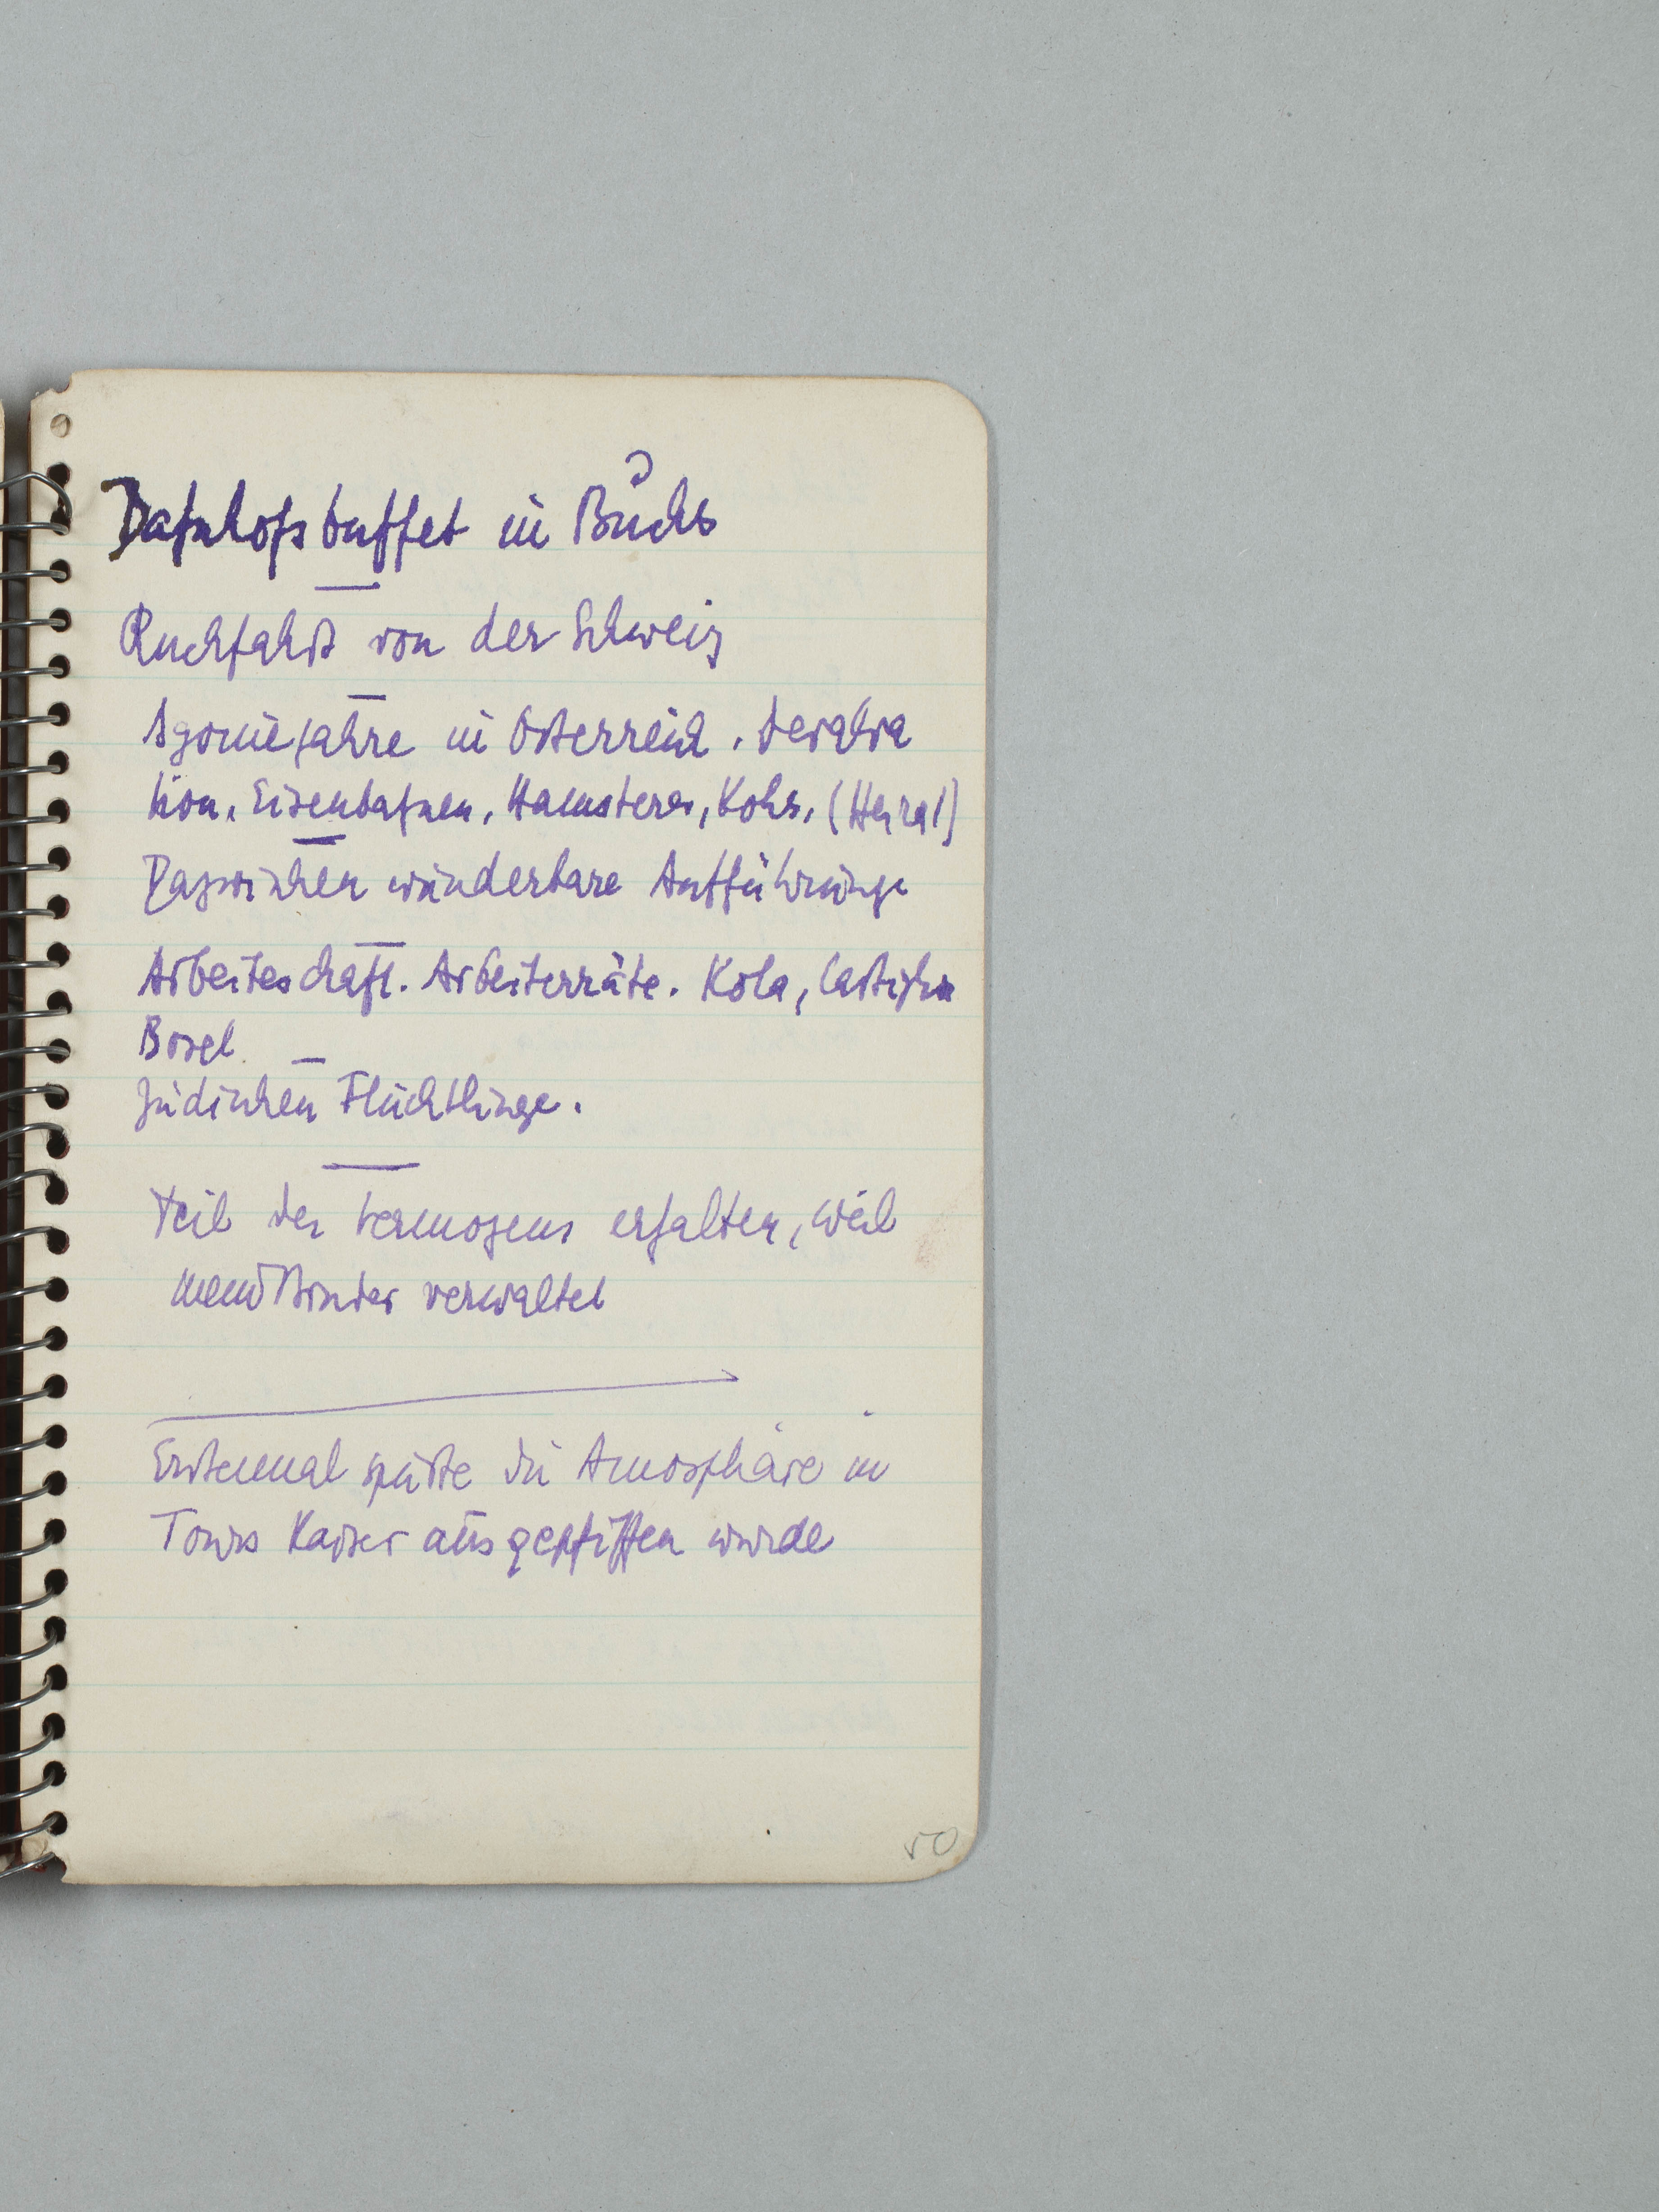 Bahnhofsbuffet in Buchs
Ruckfahrt von der Schweiz
Agoniejahre in Österreich. Devalva
tion, Eisenbahnen, Hamsterer, Kohle,
Dazwischen wunderbare Aufführunge
Arbeiterschaft. Arbeiterräte. Kola, Castiglione
Bosel
Jüdischen Flüchtlinge.
Teil des Vermogens erhalten, weil
mein Bruder verwaltet
Erstemal spürte die Atmosphäre in
Tours Kaiser ausgepfiffen wurde
50